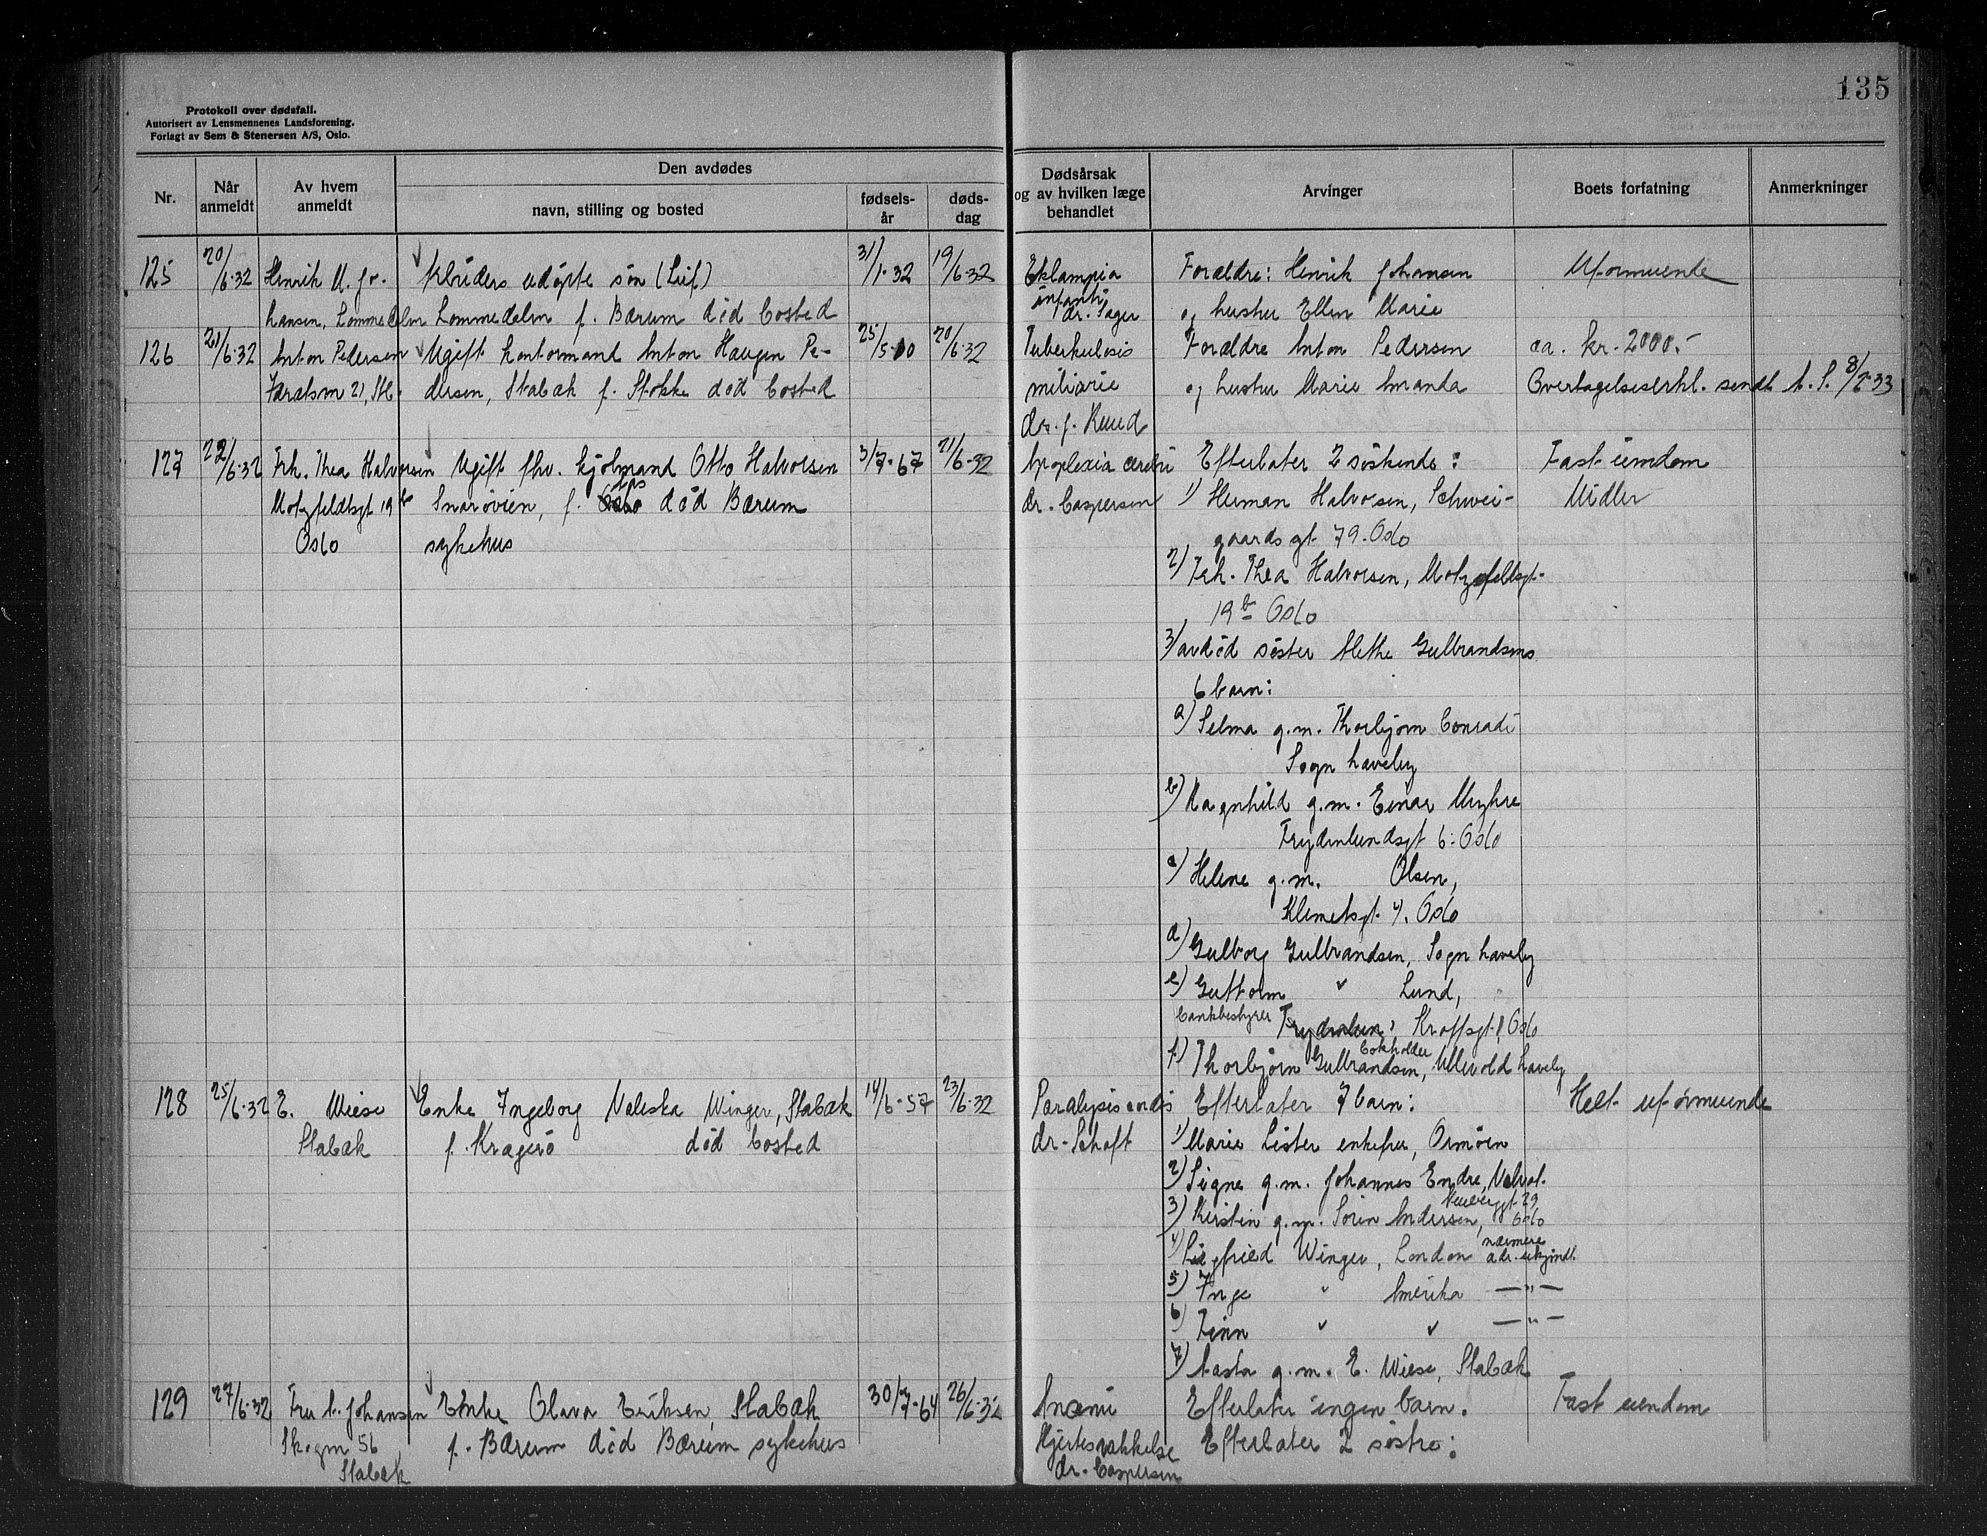 135
Protokoll over dødsfall.
Autorisert av Lensmennenes Landsforening.
Forlagt av Sem & Stenersen A/S, Oslo.
Nr.
Når anmeldt
Av hvem anmeldt
Den avdødes
navn, stilling og bosted
fødsels-år
døds-dag
Dødsårsak og av hvilken læge behandlet
Arvinger
Boets forfatning
Anmerkninger
125 20/6-32 Henrik M. Jo- udøpte søn (Leif) 31/1-32 19/6-32 Eklampia Foreldre: Henrik Johansen Uformuende
hansen, Lommedalen Lommedalen f. Bærum død bosted infanti og hustru Ellen Marie
dr. Sager
126 21/6-32 Anton Pedersen Ugift kontormand Anton Haugen Pe- 25/5-10 20/6-32 Tuberkulosis Foreldre Anton Pedersen ca. kr. 2000.-
21, Stb. dersen, Stabæk f. Stokke død bosted miliarie og hustru Marie Amanda Overtagelseserkl. sendt A. S. 8/2-33
dr. J. Ruud
127 22/6-32 Frk. Thea Halvorsen Ugift fhv. kjølmand Otto Halvorsen 3/7-67 21/6-32 Apoplexia cerebri Efterlater 2 søskende: Fast eiendom
Motzfeldtsgt 19 b Snarøien, f. Oslo død Bærum dr. Caspersen 1) Herman Halvorsen, Schwei- Midler
Oslo sykehus gaards gt. 79. Oslo
2) Frk. Thea Halvorsen, Motzfeldtsgt.
19 b Oslo
3) avdød søster Methe Gulbrandsens
6 barn:
a) Selma g.m. Thorbjørn Conradi
Sogn haveby
b) Ragnhild g.m. Einar Myhre
Frydenlundsgt 6. Oslo
c) Helene g.m. Olsen,
Klemetsgt. 4. Oslo
d) Gulborg Gulbrandsen, Sogn haveby
e) Guttorm " Lund,
bankbestyrer Oslo
f) Thorbjørn Gulbrandsen, bokholder Ullevold haveby
128 25/6-32 E. Wiese Enke Ingeborg Valeska Winger, Stabæk 14/6-57 23/6-32 Paralysis cordis Efterlater 7 barn: Helt uformuende
Stabæk f. Kragerø død bosted dr. Schaft 1) Marie Lister enkefru, Ormøen
2) Signe g.m. Johannes Endre,
3) Kirstin g.m. Sørin Andersen, 29 Oslo
4) Siegfried Winger, London nærmere adr. ukjendt.
5) Inge " Amerika — " —
6) Finn " " — " —
7) Aasta g.m. E. Wiese, Stabæk
129 27/6-32 Fru A. Johansen Enke Olava Eriksen, Stabæk 30/7-64 26/6-32 Anæmi Efterlater ingen barn. Fast eiendom
Skogvn 56 f. Bærum død Bærum sykehus Hjertesvakkelse Efterlater 2 søstre:
Stabæk dr. Caspersen